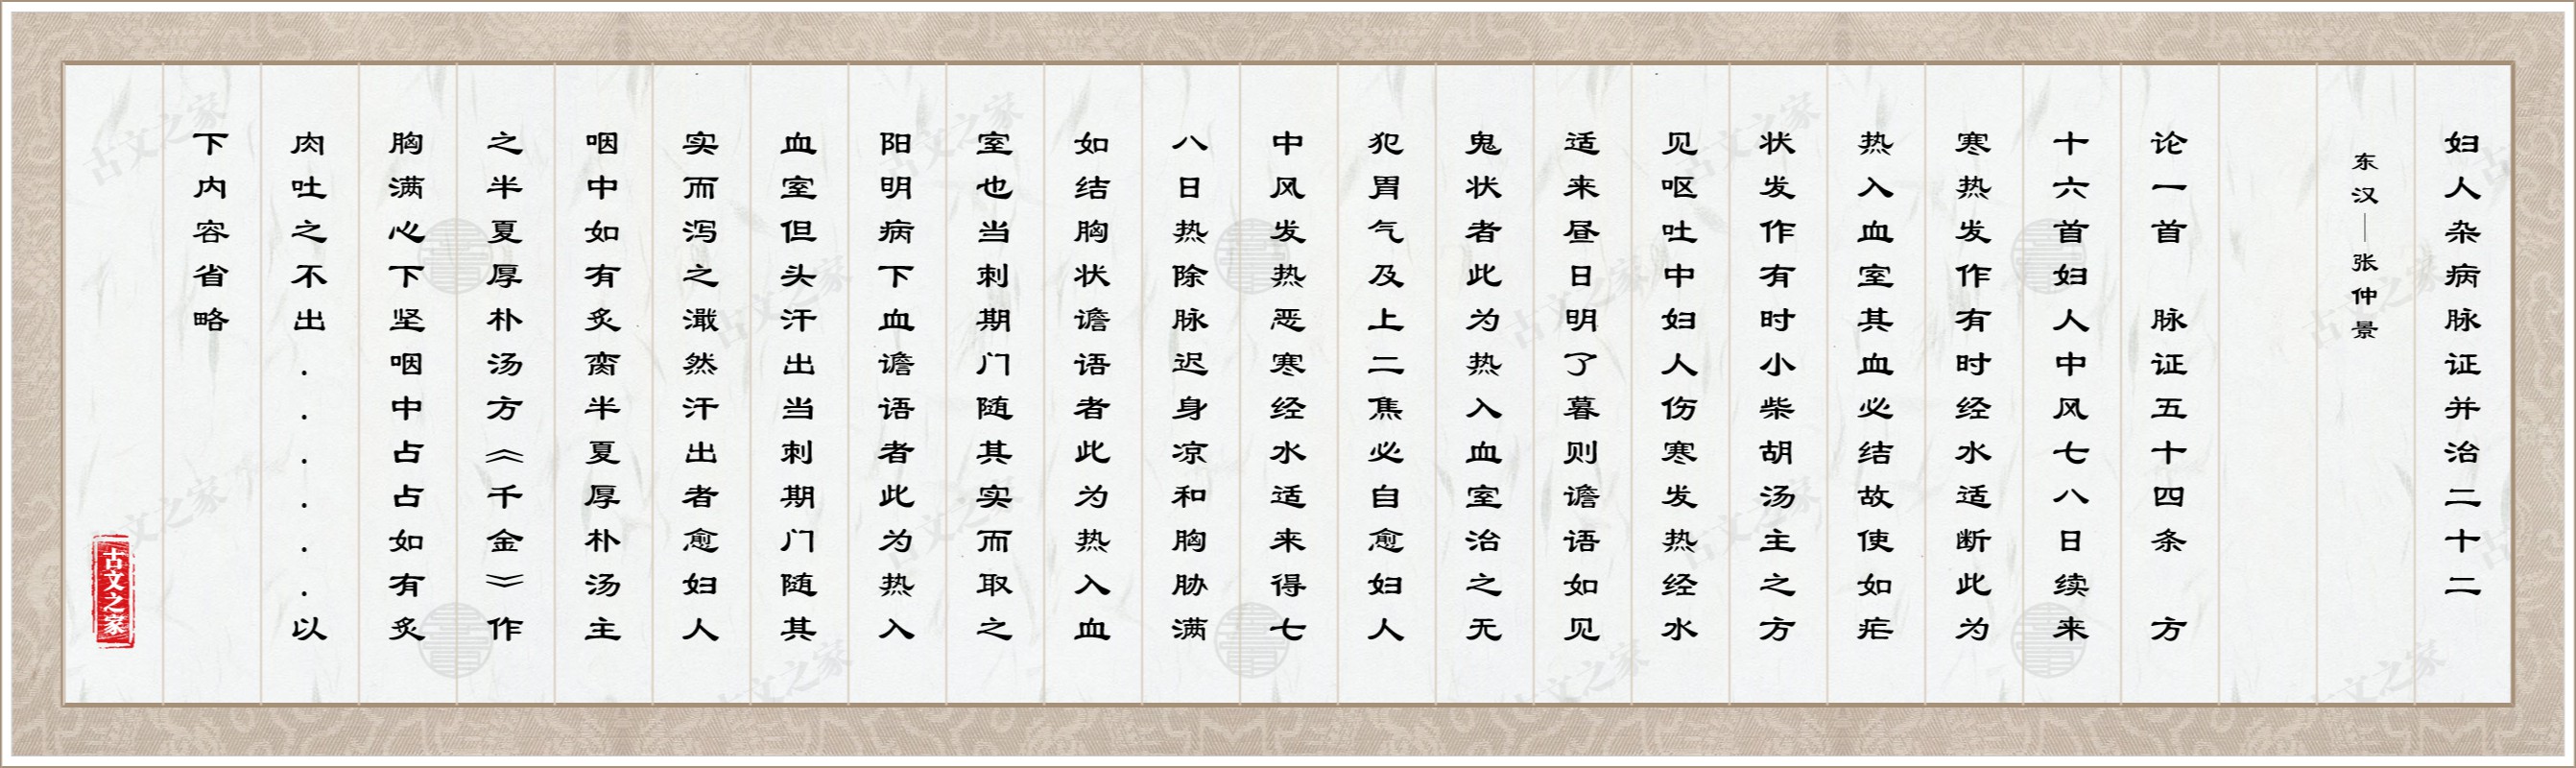 妇人杂病脉证并治二十二
东汉—张仲景
论一首　脉证五十四条　方
十六首妇人中风七八日续来
寒热发作有时经水适断此为
热入血室其血必结故使如疟
状发作有时小柴胡汤主之方
见呕吐中妇人伤寒发热经水
适来昼日明了暮则谵语如见
鬼状者此为热入血室治之无
犯胃气及上二焦必自愈妇人
中风发热恶寒经水适来得七
八日热除脉迟身凉和胸胁满
如结胸状谵语者此为热入血
室也当刺期门随其实而取之
阳明病下血谵语者此为热入
血室但头汗出当刺期门随其
实而泻之濈然汗出者愈妇人
咽中如有炙脔半夏厚朴汤主
之半夏厚朴汤方《千金》作
胸满心下坚咽中占占如有炙
肉吐之不出......以
下内容省略
古文之家